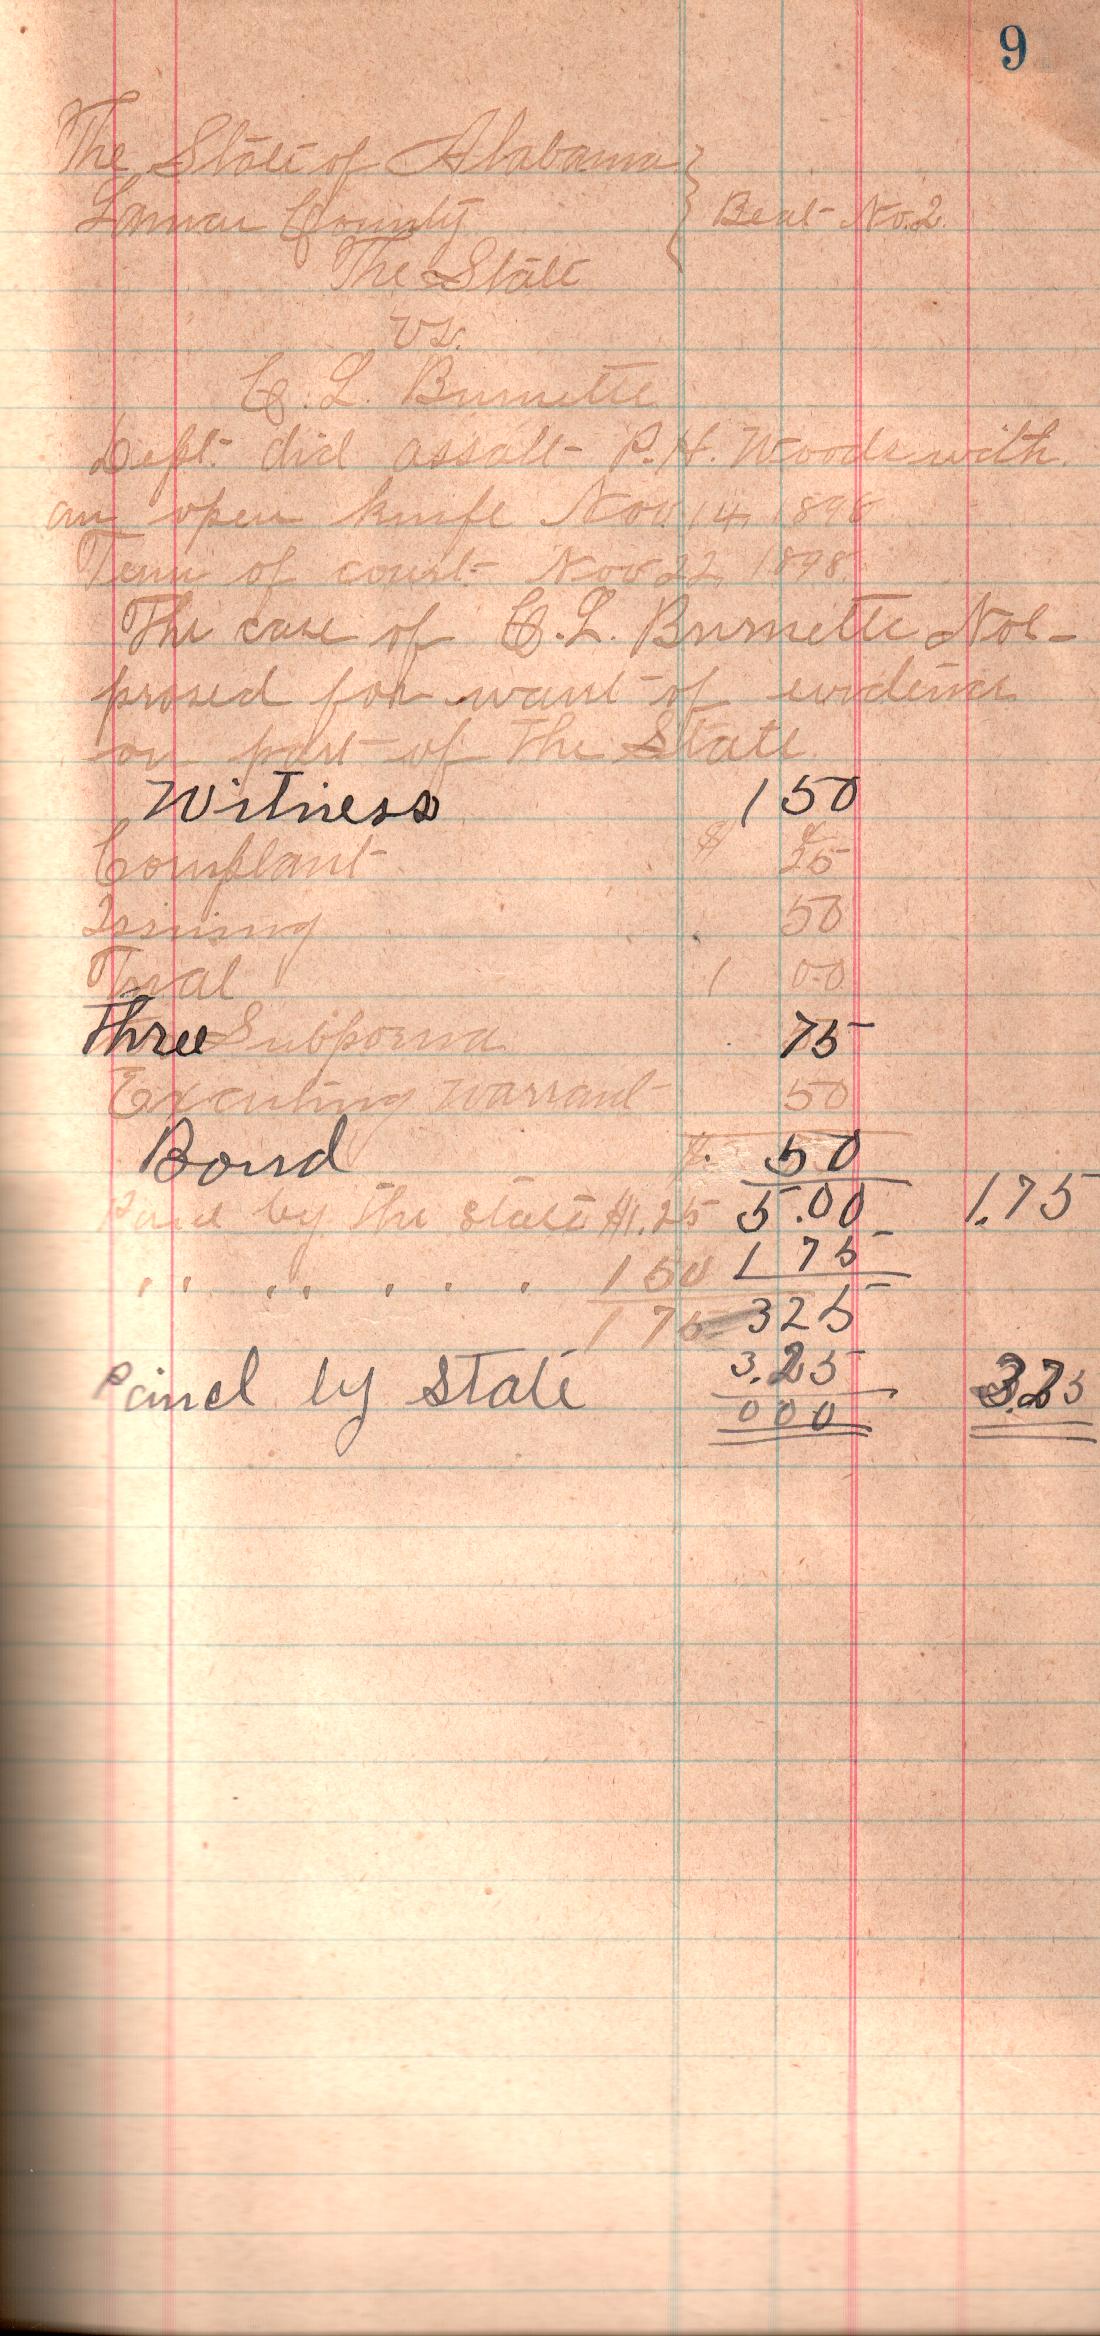 9
The State of Alabama
Lamar County } Beat No. 2.
The State
vs.
C. L. Burnette
Deft. did assalt P. H. Woods with
an open knife Nov. 14, 1898
Term of court Nov 22, 1898.
The case of C. L. Burnette Nol-
prosed for want of evidence
on part of The State
Witness 1 50
Complant $ 25
Issuing 50
Trial 1 00
Three Subpoena 75
Executing warrant 50
Bond $. 50
Paid by the state $1.25 5.00 1.75
" " " " " 150 1 75
1 75 325
Paid by State 3.25 3.25
000